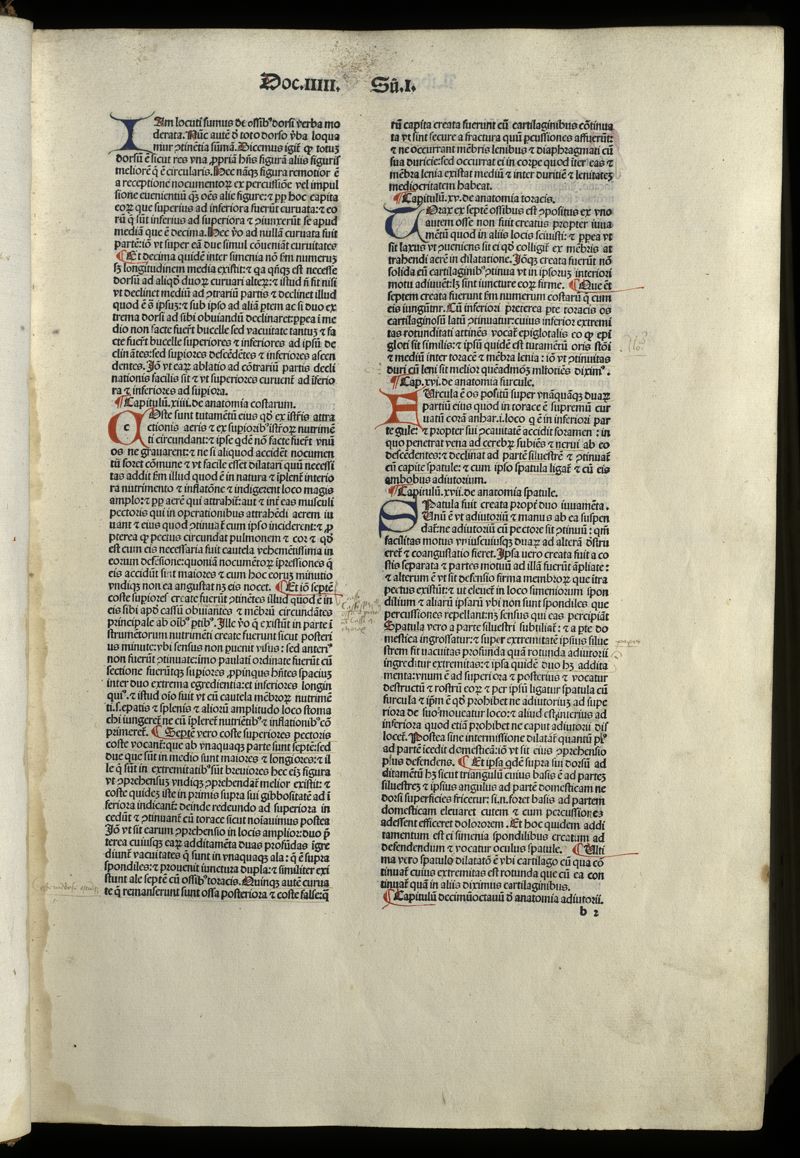 Doc.IIIII. Sũ.I.
Iam locuti sumus de ossib⁹ dorsi verba mo
derata. Nũc autẽ ꝺ toto dorso ṽba loqua
mur ꝯtinẽtia sũmã. Dicemus igit̃ ꝙ totuꝫ
dorsũ ẽ sicut res vna ꝓpriã hñs figurã aliis figuris
meliorẽ q̃ ẽ circularis. Hec nãqꝫ figura remotior ẽ
a receptione nocumentoꝝ ex percussiõe vel impul
sione euenientiũ qꝫ oẽs alie figure: ⁊ ꝓp hoc capita
eoꝝ que superius ad inferiora fuerũt curuata: ⁊ eo
rũ q̃ sũt inferius ad superiora ⁊ ꝯiunxerũt se apud
mediã que ẽ decima. Hec ṽo ad nullã curuata fuit
partẽ: iõ vt super eã due simul cõueniãt curuitates
¶ Et decima quidẽ inter simenia nõ ẽm numerũ
sꝫ longitudinem media existit: ⁊ qa qñqꝫ est necesse
dorsũ ad aliqd̓ duoꝝ curuari alteꝝ: ⁊ istud ñ fit nisi
vt declinet mediũ ad ꝯtrariũ partis ⁊ declinet illud
quod ẽ ã ipsuꝫ: ⁊ sub ipso ad aliã ptem ac si duo ex
trema dorsi ad sibi obuiandũ declinaret: ꝓpea i me
dio non facte fuer̃t bucelle sed vacuitate tantuꝫ ⁊ fa
cte fuer̃t bucelle superiores ⁊ inferiores ad ipsũ de
clinãtes: sed supiores descẽdẽtes ⁊ inferiores ascen
dentes. Jõ vt eaꝝ ablatio ad cõtrariũ partis decli
nationis facilis sit ⁊ vt superiores curuent̃ ad ĩferio
ra ⁊ inferiores ad supiora.
¶ Capitulũ.xiiii. de anatomia costarum.
Coste sunt tutamẽtũ eius qd̓ ex istr̃is attra
ctionis aeris ⁊ ex supiorib⁹ istr̃oꝝ nutrimẽ
ti circundant: ⁊ ipse qdẽ nõ facte fuer̃t vnũ
os ne grauarent: ⁊ ne si aliquod accidẽt nocumen
tũ foret cõmune ⁊ vt facile esset dilatari quũ necessi
tas addit̃ ẽm illud quod ẽ in natura ⁊ ĩplent̃ interio
ra nutrimento ⁊ inflatõne ⁊ indigerent loco magis
amplo: ⁊ ꝓp aerẽ qui attrahit̃: aut ⁊ int̃ eas musculi
pectoris qui in operationibus attrahẽdi aerem iu
uant ⁊ eius quod ꝯtinuat̃ cum ipso inciderent: ⁊ ꝓ
pterea ꝙ pectus circundat pulmonem ⁊ cor ⁊ qd̓
est cum eis necessaria fuit cautela vehemẽtissima in
eorum defẽsione: quoniã nocumẽtoꝝ ĩpressiones q̃
eis accidũt sũt maiores ⁊ cum hoc eoruꝫ minutio
vndiqꝫ non ea angustat nꝫ eis nocet. ¶ Et iõ septẽ
coste supiores create fuerũt ꝯtinẽtes illud quod ẽ in
eis sibi apd̓ cassũ obuiantes ⁊ mẽbrũ circundãtes
principale ab oĩb⁹ ptib⁹. Ille ṽo q̃ existũt in parte ĩ
strumẽtorum nutrimenti create fuerunt sicut posteri
us minute: vbi sensus non puenit visus: sed anteri⁹
non fuerũt ꝯtinuate: imo paulati ordinate fuerũt cũ
sectione fuerũtqꝫ supiores ꝓpinquus hñtes spacius
inter duo extrema egredientia: et inferiores longin
qui⁹. ⁊ istud oĩo fuit vt cũ cautela mẽbroꝝ nutrimẽ
ti.s. epatis ⁊ splenis ⁊ alioꝝ amplitudo loco stoma
chi iungeret̃ ne cũ ĩpleret̃ nutriẽtib⁹ ⁊ inflationib⁹ cõ
primeret̃. ¶ Septẽ vero coste superiores pectoris
coste vocant̃: que ab vnaquaqꝫ parte sunt septẽ: sed
due que sũt in medio sunt maiores ⁊ longiores: ⁊ il
le q̃ sũt in extremitatib⁹ sũt breuiores hec eĩꝫ figura
vt ꝯprehensuꝫ vndiqꝫ ꝯprehendat̃ melior existit: ⁊
coste quidẽ iste in primis supra sui gibbositatẽ ad ĩ
feriora indicant̃: deinde redeundo ad superiora in
cedũt ⁊ ꝯtinuant̃ cũ torace sicut noĩauimus postea
Jõ vt sit earum ꝯprehensio in locis amplior: duo p̃
terea cuiusqꝫ eaꝝ additamẽta duas profũdas ĩgre
diunt̃ vacuitates q̃ sunt in vnaquaqꝫ ala: q̃ ẽ supra
spondiles: ⁊ prouenit iunctura dupla: ⁊ similiter exi
stunt ale septẽ cũ ossib⁹ toracis. Quinqꝫ autẽ curua
te q̃ remanserunt sunt ossa posteriora ⁊ coste false: q̃
rũ capita creata fuerunt cũ cartilaginibus cõtinua
ta vt sint secure a fractura quũ pcussiones affuerũt:
⁊ ne occurrant mẽbris lenibus ⁊ diaphragmati cũ
sua duricie: sed occurrat ei in corpe quod iter eas ⁊
mẽbra lenia existat mediũ ⁊ inter duritiẽ ⁊ lenitateꝫ
mediocritatem habeat.
¶ Capitulũ.xv. de anatomia toracis.
Thorax ex septẽ ossibus est ꝯpositus ex vno
autem osse non fuit creatus propter iuua
mẽtũ quod in aliis locis sciuisti: ⁊ ꝓpea vt
sit laxus vt ꝯueniens sit ei qd̓ colligit̃ ex mẽbris at
trahendi aerẽ in dilatatione. Jõqꝫ creata fuerũt nõ
solida cũ cartilaginib⁹ ꝯtinua vt in ipsoruꝫ interiori
motu adiuuẽt: lꝫ sint iuncture eoꝝ firme. ¶ Que et̃
septem creata fuerunt ẽm numerum costarũ q̃ cum
eis iungũnt̃. Cũ inferiori preterea pte toracis os
cartilaginosũ latũ ꝯtinuatur: cuius inferior extremi
tas rotunditati attinẽs vocat̃ epiglotalis eo ꝙ epi
gloti sit similis: ⁊ ipsũ quidẽ est tutamẽũ oris stõi
⁊ mediũ inter toracẽ ⁊ mẽbra lenia: iõ vt ꝯtinuitas
duri cũ leni sit melior quẽadmoꝫ mltotiẽs diximˀ.
¶ Cap.xvi. de anatomia furcule.
Furcula ẽ os positũ super vnãquãqꝫ duaꝝ
partiũ eius quod in torace ẽ supremũ cur
uatũ corã anhar.i.loco q̃ ẽ in inferiori par
te gule: ⁊ propter sui ꝯcauitatẽ accidit foramen: in
quo penetrat vena ad cerebꝝ subiẽs ⁊ nerui ab eo
descẽdentes: ⁊ declinat ad partẽ siluestrẽ ⁊ ꝯtinuat̃
cũ capite spatule: ⁊ cum ipso spatula ligat̃ ⁊ cũ eis
ambobus adiutorium.
¶ Capitulũ.xvii. de anatomia spatule.
Spatula fuit creata propt̃ duo iuuamẽta.
Vnũ ẽ vt adiutoriũ ⁊ manus ab ea suspen
dat̃: ne adiutoriũ cũ pectore sit ꝯtinuũ: qm̃
facilitas motus vniuscuiusqꝫ duaꝝ ad alterã ꝺstru
eret̃ ⁊ coangustatio fieret. Ipsa uero creata fuit a co
stis separata ⁊ partes motuũ ad illã fuerũt ãpliate:
⁊ alterum ẽ vt sit defensio firma membroꝝ que ĩtra
pectus existũt: ⁊ ut eleuet̃ in loco simeniorum spon
dilium ⁊ aliarũ ipsarũ vbi non sunt spondiles que
percussiones repellant: nꝫ sensus qui eas percipiãt
Spatula vero a parte siluestri subtiliat̃: ⁊ a pte do
mestica ingrossatur: ⁊ super extremitatẽ ipsius silue
strem fit uacuitas profunda quã rotunda adiutorii
ingreditur extremitas: ⁊ ipsa quidẽ duo hꝫ addita
menta: vnum ẽ ad superiora ⁊ posterius ⁊ vocatur
destructũ ⁊ rostrũ eoꝝ ⁊ per ipsũ ligatur spatula cũ
furcula ⁊ ipm̃ ẽ qd̓ prohibet ne adiutoriuꝫ ad supe
riora de suo moueatur loco: ⁊ aliud est interius ad
inferiora quod etiã prohibet ne caput adiutorii dis
locet̃. Postea sine intermissione dilatat̃ quantũ pl⁹
ad partẽ ĩcedit domesticã: iõ vt sit eius ꝯprehensio
plus defendens. ¶ Et ipsa qdẽ supra sui dorsũ ad
ditamẽtũ hꝫ sicut triangulũ cuius basis ẽ ad parteꝫ
siluestreꝫ ⁊ ipsius angulus ad partẽ domesticam ne
dorsi superficies fricetur: si.n. foret basis ad partem
domesticam eleuaret cutem ⁊ cum percussiones
adessent efficeret dolororem. Et hoc quidem addi
tamentum est ei simenia spondilibus creatum ad
defendendum ⁊ vocatur oculus spatule. ¶ Ulti
ma vero spatule dilatatõ ẽ vbi cartilago cũ qua cõ
tinuat̃ cuius extremitas est rotunda que cũ ea con
tinuat̃ quã in aliis diximus cartilaginibus.
¶ Capitulũ decimũoctauũ ꝺ anatomia adiutorii.
b 2